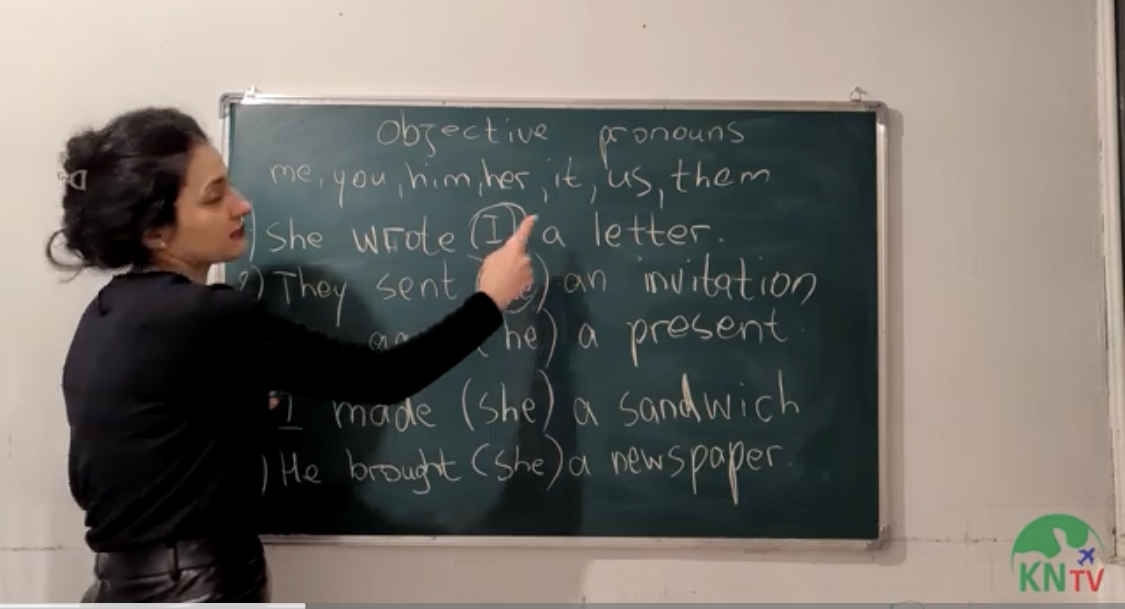 Objective pronouns
me, you, him, her, it, us, them
) She wrote (I) a letter.
2) They sent an invitation
(he) a present
I made (she) a sandwich
) He brought (she) a newspaper.
KNTV